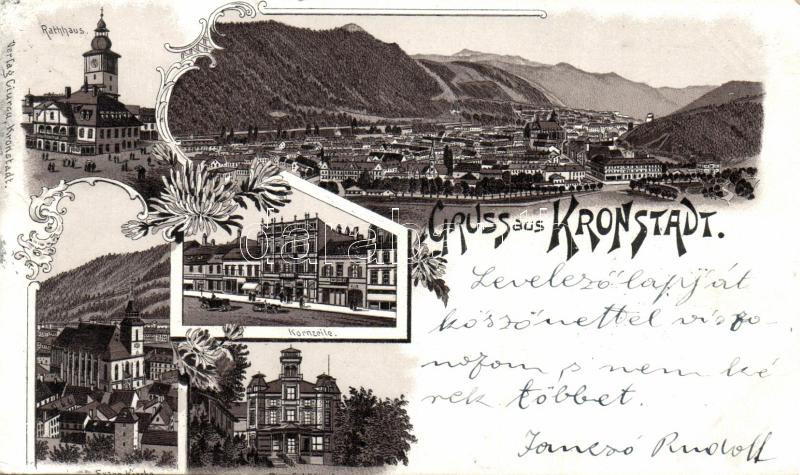 Rathhaus.
Verlag Ciurcu, Kronstadt.
GRUSS aus KRONSTADT.
Kornzeile.
Levelező lapját
köszönettel viszo
nozom s nem ké
rek többet.
Janczó Rudolf